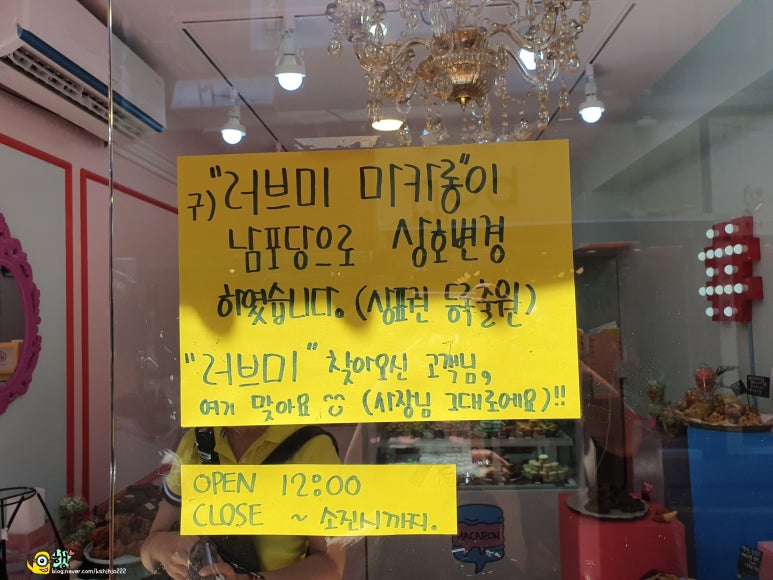 구) "러브미 마카롱"이
남포당으로 상호변경
하였습니다. (상표권 등록출원)
"러브미" 찾아오신 고객님,
여기 맞아요 (사장님 그대로에요)!!
OPEN 12:00
CLOSE ~ 소진시까지.
MACARON
blog.naver.com/kshjhjo222